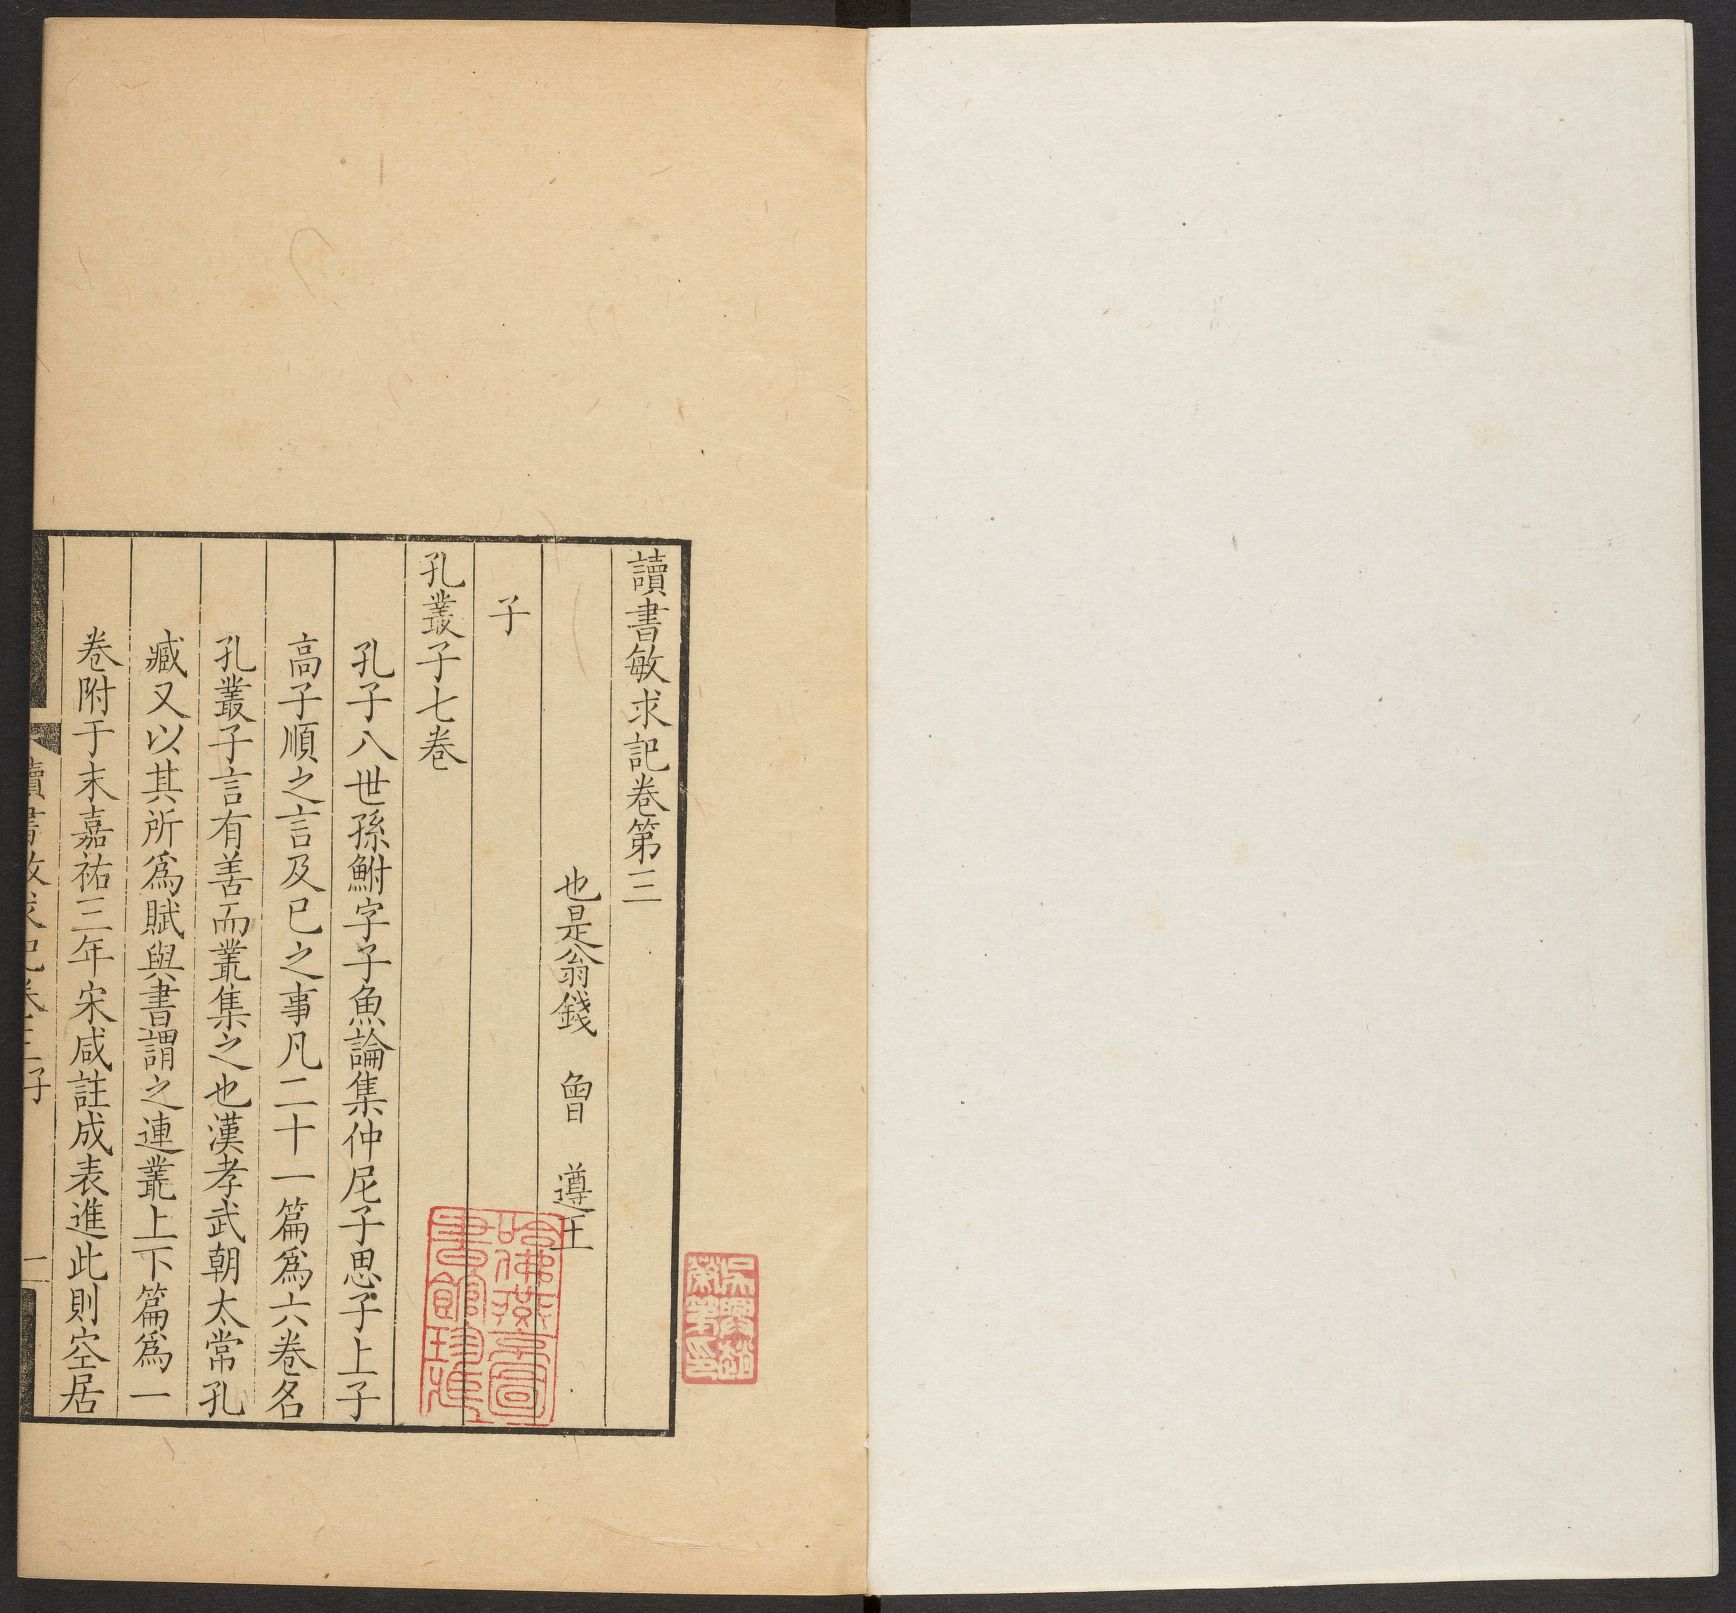 讀書敏求記卷第三
也是翁錢 曾 遵王
子
孔叢子七卷
孔子八世孫鮒字子魚論集仲尼子思子上子
高子順之言及已之事凡二十一篇爲六卷名
孔叢子言有善而叢集之也漢孝武朝太常孔
臧又以其所爲賦與書謂之連叢上下篇爲一
卷附于末嘉祐三年宋咸註成表進此則空居
讀書敏求記卷三子
一
哈佛燕京圖
書館珍藏